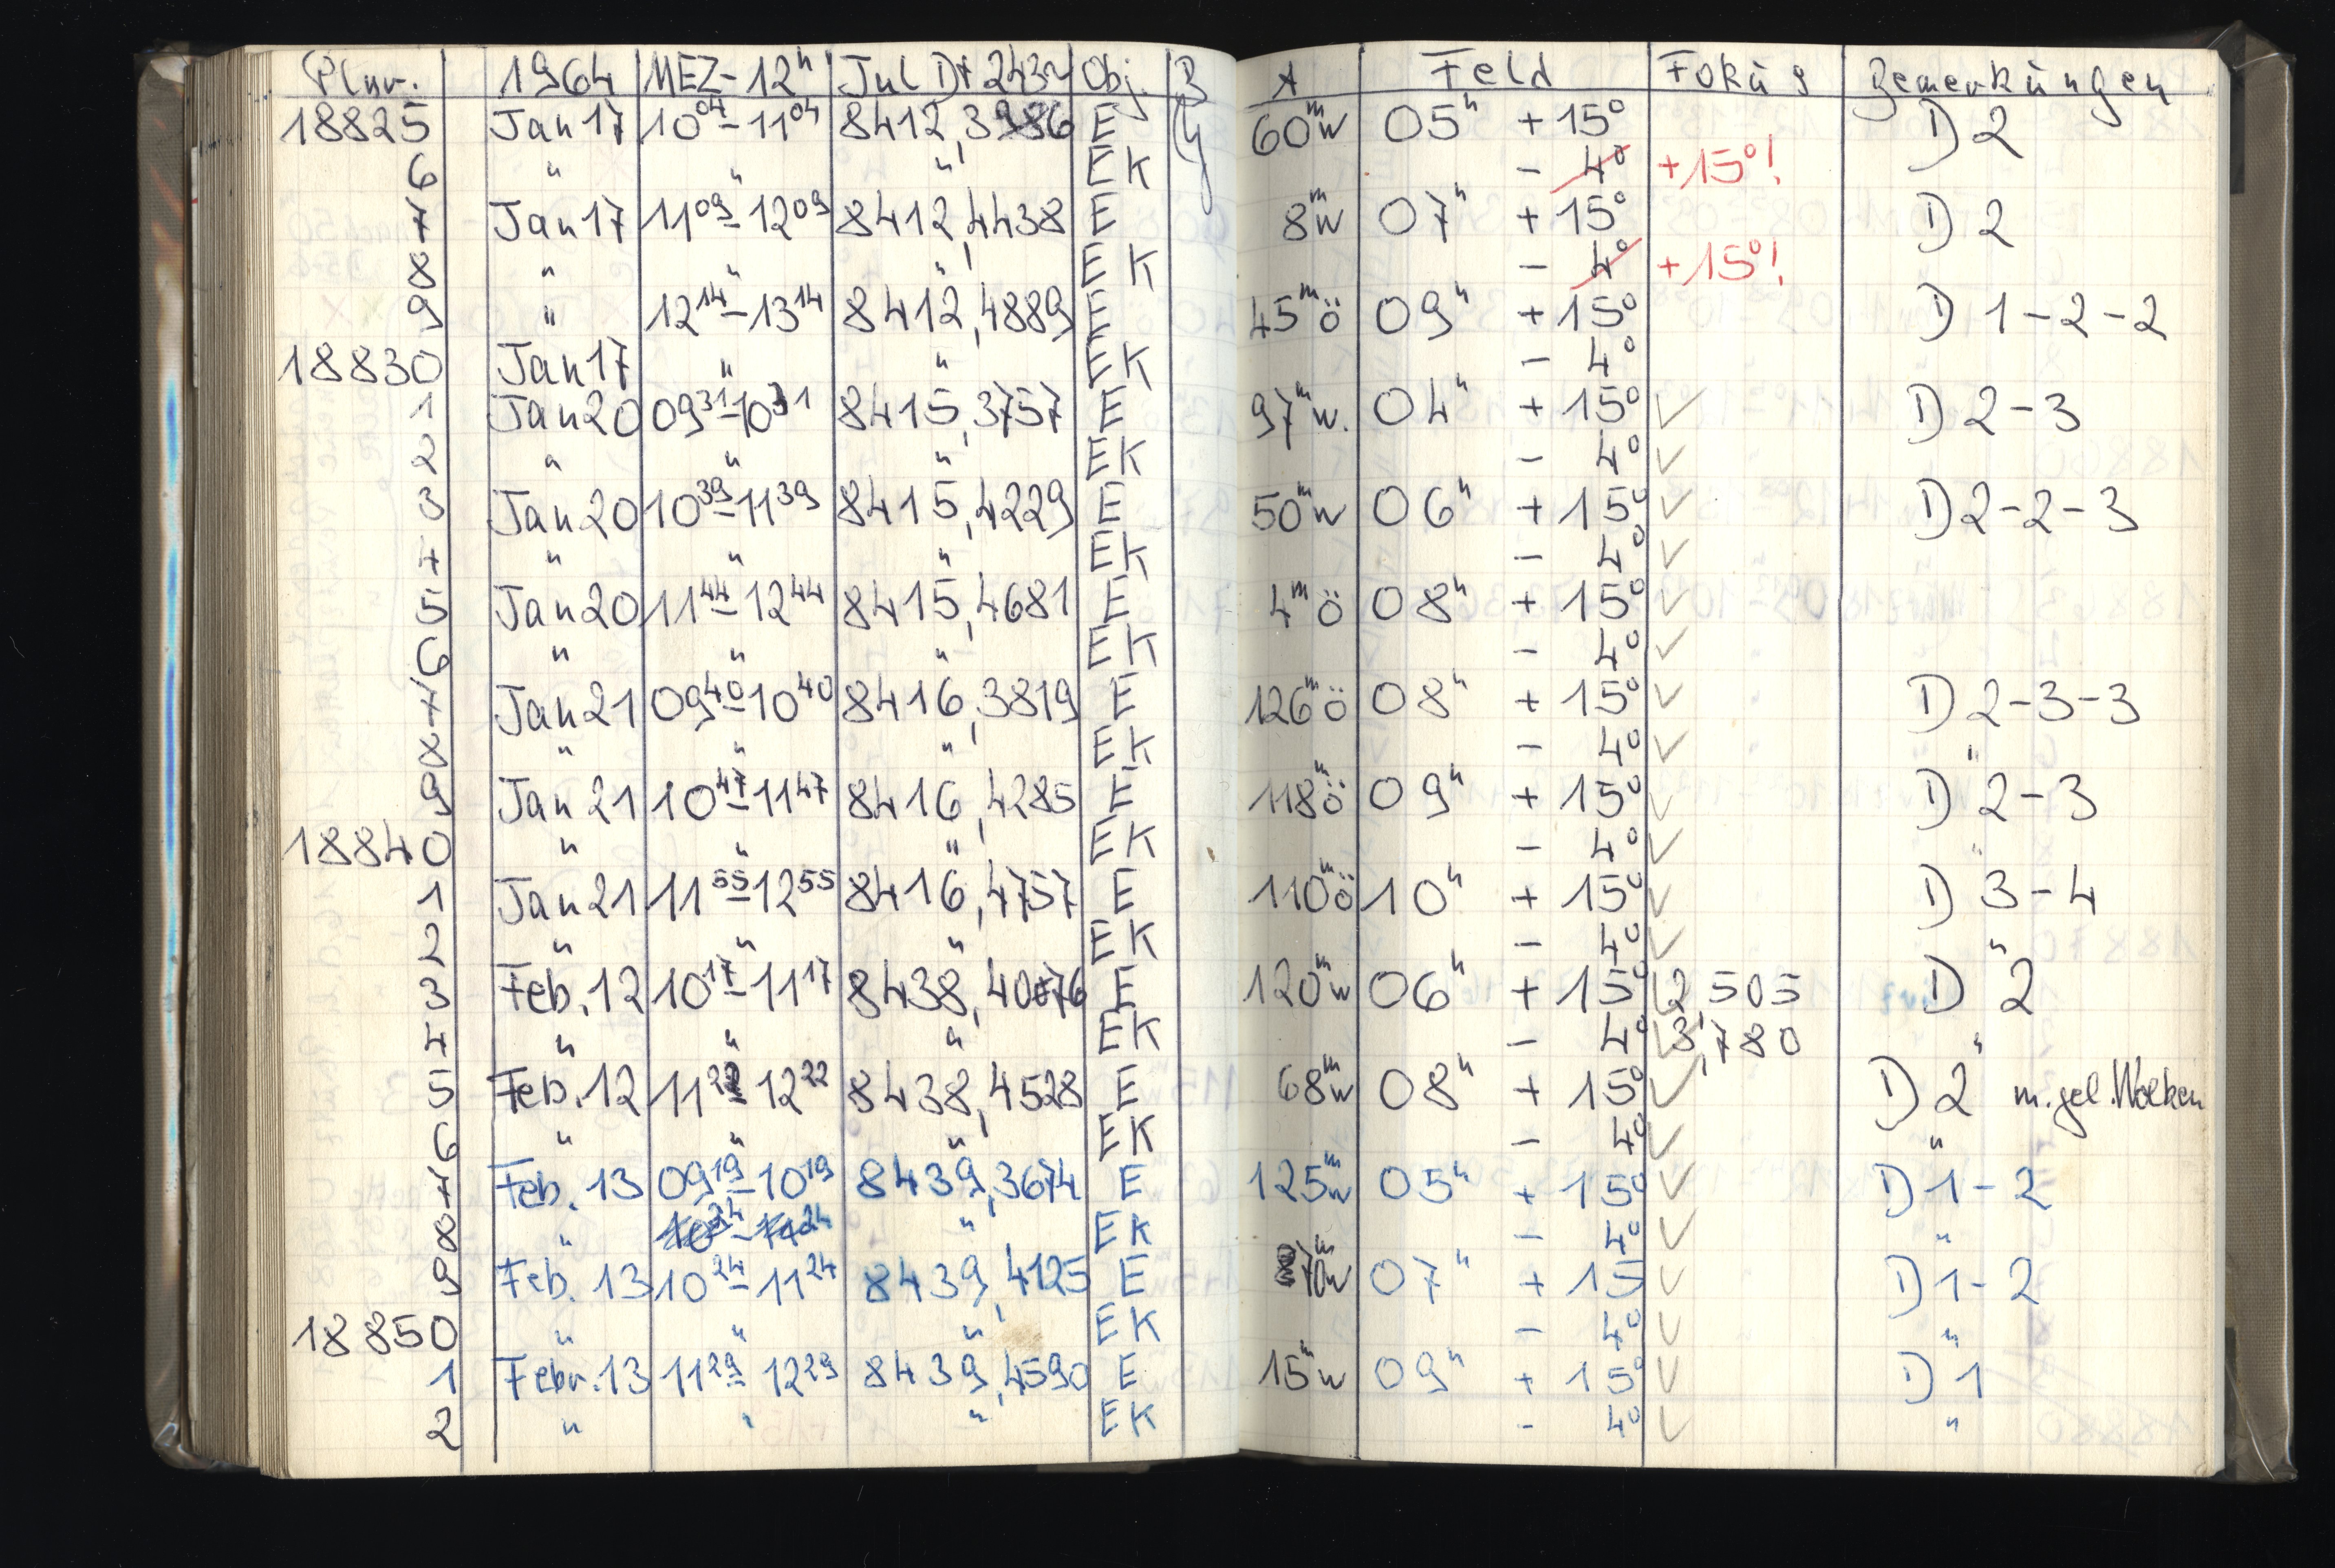 Plnr. 1964 MEZ-12ʰ Jul Dt 243~ Obj. B A Feld Fokus Bemerkungen
18825 Jan 17 10⁰⁴-11⁰⁴ 8412,3986 E 60ᵐw 05ʰ +15° D 2
6 " " " EK - 4° +15°!
7 Jan 17 11⁰⁹-12⁰⁹ 8412,4438 E 8ᵐw 07ʰ +15° D 2
8 " " " EK - 4° +15°!
9 " 12¹⁴-13¹⁴ 8412,4889 E 45ᵐö 09ʰ +15° D 1-2-2
18830 Jan 17 " " EK - 4°
1 Jan 20 09³¹-10³¹ 8415,3757 E 97ᵐw. 04ʰ +15° ✓ D 2-3
2 " " " EK - 4° ✓
3 Jan 20 10³⁹-11³⁹ 8415,4229 E 50ᵐw 06ʰ +15° ✓ D 2-2-3
4 " " " EK - 4° ✓
5 Jan 20 11⁴⁴-12⁴⁴ 8415,4681 E 4ᵐö 08ʰ +15° ✓
6 " " " EK - 4° ✓
7 Jan 21 09⁴⁰-10⁴⁰ 8416,3819 E 126ᵐö 08ʰ +15° ✓ D 2-3-3
8 " " " EK - 4° ✓ "
9 Jan 21 10⁴⁷-11⁴⁷ 8416,4285 E 118ᵐö 09ʰ +15° ✓ D 2-3
18840 " " " EK - 4° ✓ "
1 Jan 21 11⁵⁵-12⁵⁵ 8416,4757 E 110ᵐö 10ʰ +15° ✓ D 3-4
2 " " " EK - 4° ✓ "
3 Feb. 12 10¹⁷-11¹⁷ 8438,4076 E 120ᵐw 06ʰ +15° ✓ 2,505 D 2
4 " " " EK - 4° ✓ 8,780 "
5 Feb. 12 11²²-12²² 8438,4528 E 68ᵐw 08ʰ +15° ✓ D 2 m.gel.Wolken
6 " " " EK - 4° ✓ "
7 Feb. 13 09¹⁹-10¹⁹ 8439,3674 E 125ᵐw 05ʰ +15° ✓ D 1-2
8 " 10²⁴-11²⁴ " EK - 4° ✓ "
9 Feb. 13 10²⁴-11²⁴ 8439,4125 E 70ᵐw 07ʰ +15 ✓ D 1-2
18850 " " " EK - 4° ✓ "
1 Febr. 13 11²⁹-12²⁹ 8439,4590 E 15ᵐw 09ʰ +15° ✓ D 1
2 " " " EK - 4° ✓ "